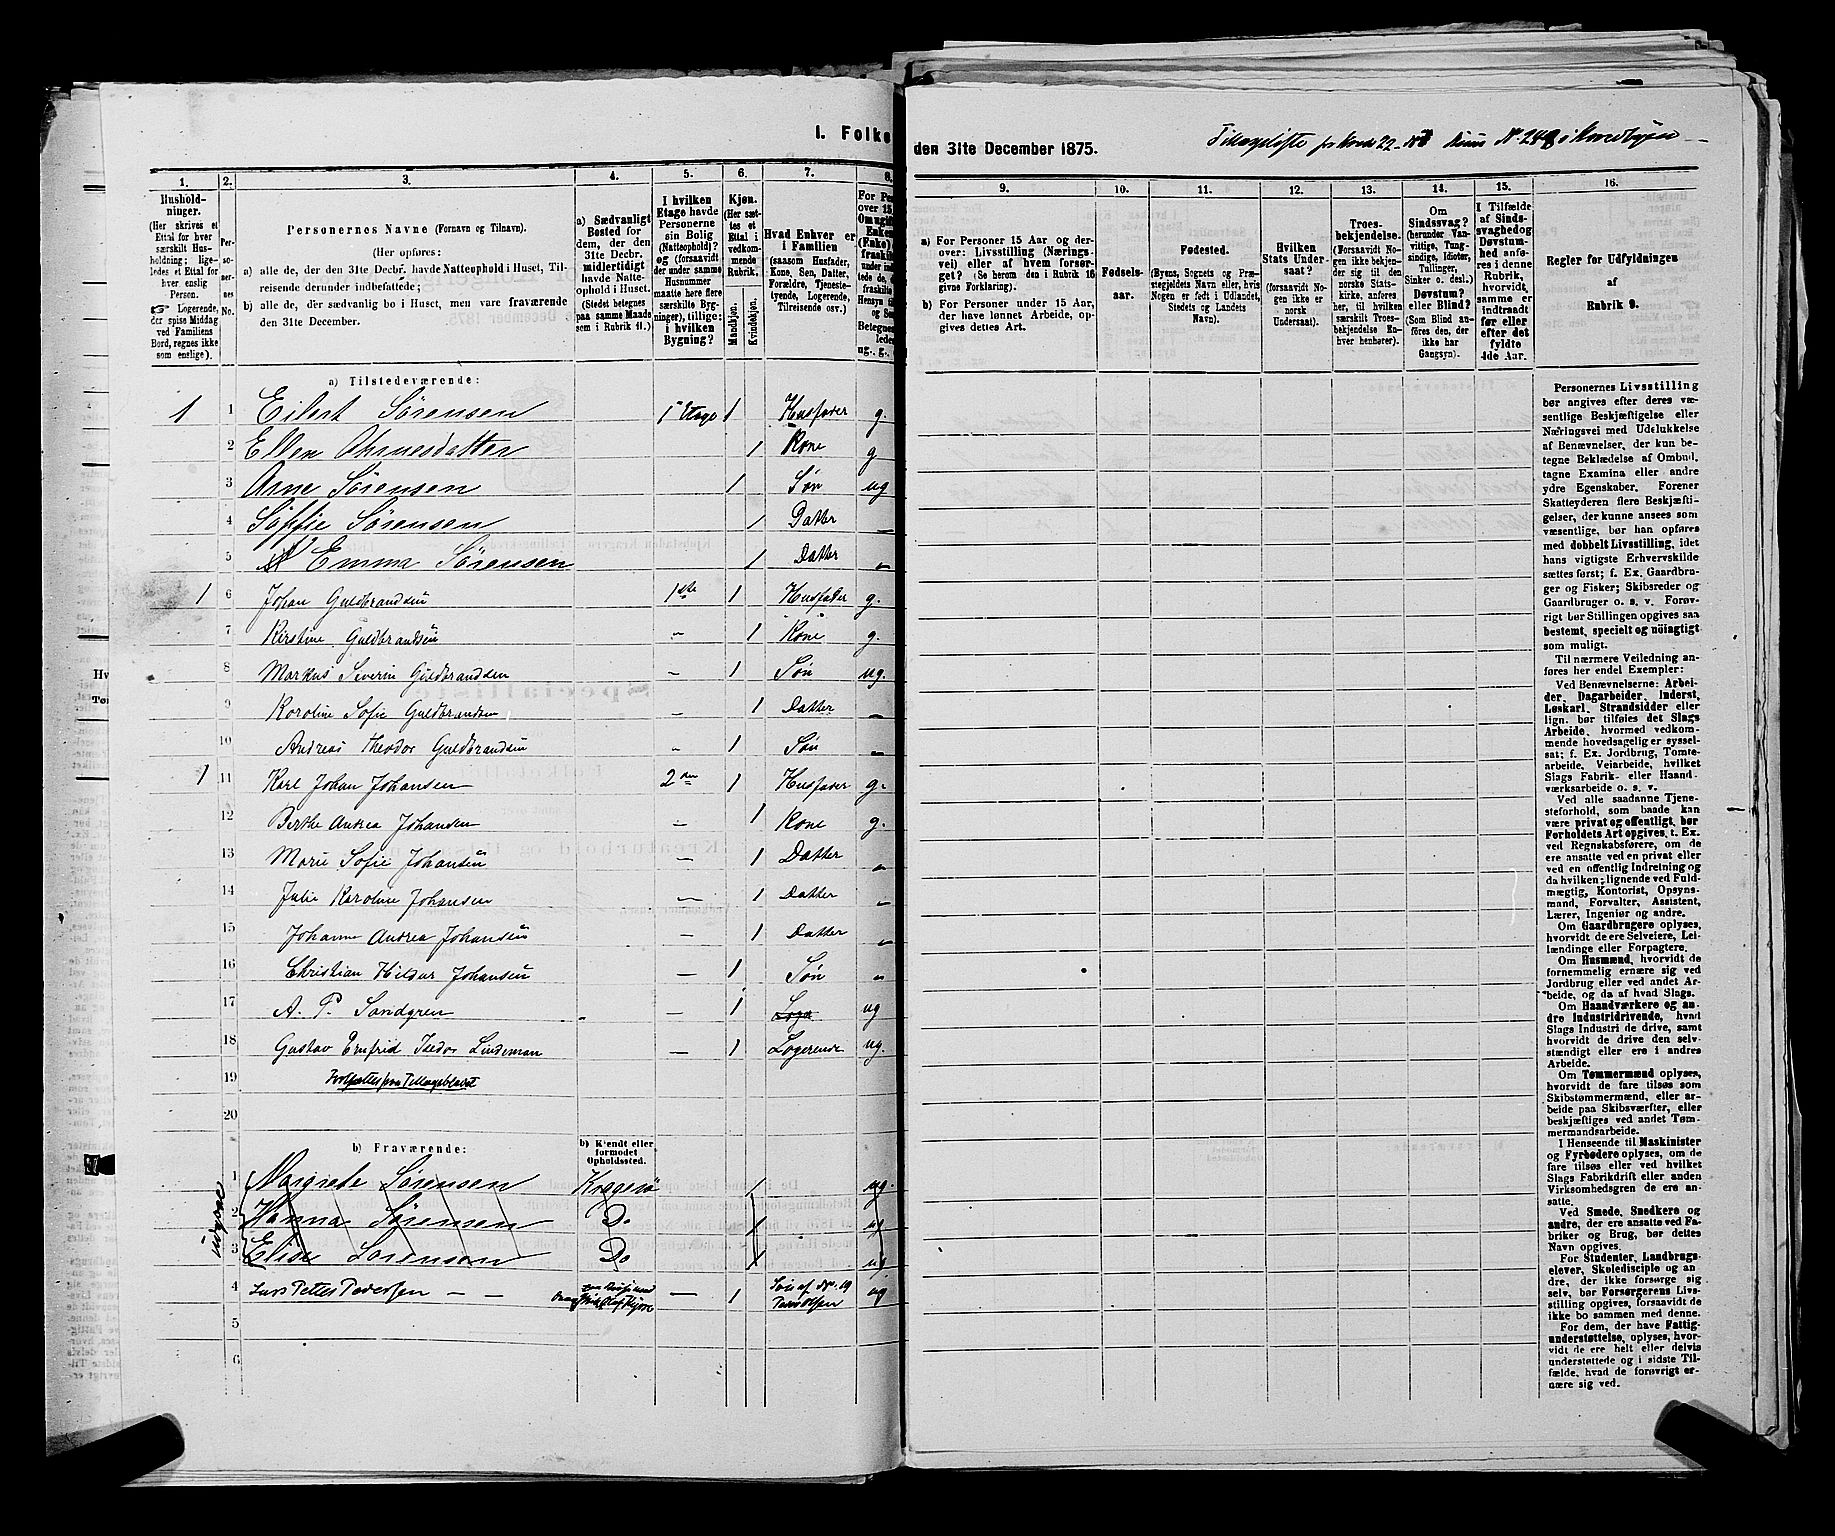 I. Folke
1. 2. 3. 4. 5. 6. 7. 8.
Husholdninger.
(Her skrives et Ettal for hver særskilt Husholdning; ligeledes et Ettal for hver enslig Person.
☞ Logerende, der spise Middag ved Familiens Bord, regnes ikke som enslige).
Personernes No.
Personernes Navne (Fornavn og Tilnavn).
(Her opføres:
a) alle de, der den 31te Decbr. havde Natteophold i Huset, Tilreisende derunder indbefattede;
b) alle de, der sædvanlig bo i Huset, men vare fraværende den 31te December.
a) Sædvanligt Bosted for dem, der den 31te Decbr. midlertidigt havde Natteophold i Huset.
(Stedet betegnes paa samme Maade som i Rubrik 11.)
I hvilken Etage havde Personerne sin Bolig (Natteophold)? og (forsaavidt der under samme Husnummer maatte høre flere særskilte Bygninger), tillige: i hvilken Bygning?
Kjøn.
(Her sættes et Ettal i vedkommende Rubrik.)
Mandkjøn.
Kvindekjøn.
Hvad Enhver er i Familien
(saasom Husfader, Kone, Søn, Datter, Forældre, Tjenestetyende, Logerende, Tilreisende osv.)
a) Tilstedeværende:
1 1 Eilert Sørensen 1 Etage 1 Husfader g.
2 Ellen Ahrnesdatter 1 Kone g
3 Arne Sørensen 1 Søn ug
4 Soffie Sørensen 1 Datter „
5 Emma Sørensen 1 Datter „
1 6 Johan Guldbrandsen 1ste 1 Husfader g.
7 Kirstine Guldbrandsen „ 1 Kone g.
8 Markus Severin Guldbrandsen — 1 Søn ug.
9 Karoline Sofie Guldbrandsen — 1 Datter „
10 Andreas Theodor Guldbrandsen „ 1 Søn „
1 11 Karl Johan Johansen 2den 1 Husfader g.
12 Berthe Andrea Johansen — 1 Kone g.
13 Marie Sofie Johansen — 1 Datter „
14 Julie Karoline Johansen — 1 Datter „
15 Johanne Andrea Johansen — 1 Datter „
16 Christian Hildur Johansen — 1 Søn „
17 A. P. Sandgren — 1 Loge ug
18 Gustav Ernfrid Isedor Lindeman — 1 Logerende ug.
19
20
b) Fraværende:
b) Kjendt eller formodet Opholdssted.
1 Margrete Sørensen Kragerø 1 ug.
2 Hanna Sørensen Do 1 ug
3 Elise Sørensen Do 1 ug
4 Lars Petter Pedersen — — — 1 Søn af No. 19 ug
5
6
den 31te December 1875.
9. 10. 11. 12. 13. 14. 15. 16.
a) For Personer 15 Aar og derover: Livsstilling (Næringsvei) eller af hvem forsørget? (Se herom den i Rubrik 16 givne Forklaring).
b) For Personer under 15 Aar, der have lønnet Arbeide, opgives dettes Art.
Fødselsaar.
Fødested.
(Byens, Sognets og Præstegjeldets Navn eller, hvis Nogen er født i Udlandet, Stedets og Landets Navn).
Hvilken Stats Undersaat?
(forsaavidt Nogen ikke er norsk Undersaat).
Troesbekjendelse.
(Forsaavidt Nogen ikke bekjender sig til den norske Statskirke, anføres her, til hvilken særskilt Troesbekjendelse Enhver henhører).
Om Sindssvag? (herunder Vanvittige, Tungsindige, Idioter, Tullinger, Sinker o. desl.) Døvstum? eller Blind?
(Som Blind anføres den, der ikke har Gangsyn).
I Tilfælde af Sindssvaghed og Døvstumhed anføres i denne Rubrik, hvorvidt samme er indtraadt før eller efter det fyldte 4de Aar.
Regler for Udfyldningen
af
Rubrik 9.
Personernes Livsstilling
bør angives efter deres væsentlige
Beskjæftigelse eller
Næringsvei med Udelukkelse
af Benævnelser, der kun betegne
Beklædelse af Ombud,
tagne Examina eller andre
ydre Egenskaber. Forener
Skatteyderen flere Beskjæftigelser,
der kunne ansees som
væsentlige, bør han opføres
med dobbelt Livsstilling, idet
hans vigtigste Erhvervskilde
sættes først; f. Ex. Gaardbruger
og Fisker; Skibsreder og
Gaardbruger o. s. v. Forøvrigt
bør Stillingen opgives saa
bestemt, specielt og nöiagtigt
som muligt.
Til nærmere Veiledning anføres
her endel Exempler:
Ved Benævnelserne: Arbeider,
Dagarbeider, Inderst,
Løskarl, Strandsidder eller
lign. bør tilføies det Slags
Arbeide, hvormed vedkommende
hovedsagelig er sysselsat;
f. Ex. Jordbrug, Tomtearbeide,
Veiarbeide, hvilket
Slags Fabrik- eller Haandværksarbeide
o. s. v.
Ved alle saadanne Tjenesteforhold,
som baade kan
være privat og offentligt, bør
Forholdets Art opgives, t. Ex.
ved Regnskabsførere, om de
ere ansatte ved en privat eller
ved en offentlig Indretning og
da hvilken; lignende ved Fuldmægtig,
Kontorist, Opsynsmand,
Forvalter, Assistent,
Lærer, Ingeniør og andre.
Om Gaardbrugere oplyses,
hvorvidt de ere Selveiere, Leilændinge
eller Forpagtere.
Om Husmænd, hvorvidt de
fornemmelig ernære sig ved
Jordbrug eller ved andet Arbeide,
og da af hvad Slags.
Om Haandværkere og andre
Industridrivende, hvad
Slags Industri de drive, samt
hvorvidt de drive den selvstændigt
eller ere i andres
Arbeide.
Om Tømmermænd oplyses,
hvorvidt de fare tilsøs som
Skibstømmermænd, eller arbeide
paa Skibsværfter, eller
beskjæftiges ved andet Tømmermandsarbeide.
I Henseende til Maskinister
og Fyrbødere oplyses, om de
fare tilsøs eller ved hvilket
Slags Fabrikdrift eller anden
Virksomhedsgren de ere ansatte.
Ved Smede, Snedkere og
andre, der ere ansatte ved Fabriker
og Brug, bør dettes
Navn opgives.
For Studenter, Landbrugselever,
Skoledisciple og andre,
der ikke forsørge sig
selv, bør Forsørgerens Livsstilling
opgives, forsaavidt de
ikke bo sammen med denne.
For dem, der have Fattigunderstøttelse,
oplyses, hvorvidt
de ere helt eller delvis
understøttede og i sidste Tilfælde,
hvad de forøvrigt ernære
sig ved.